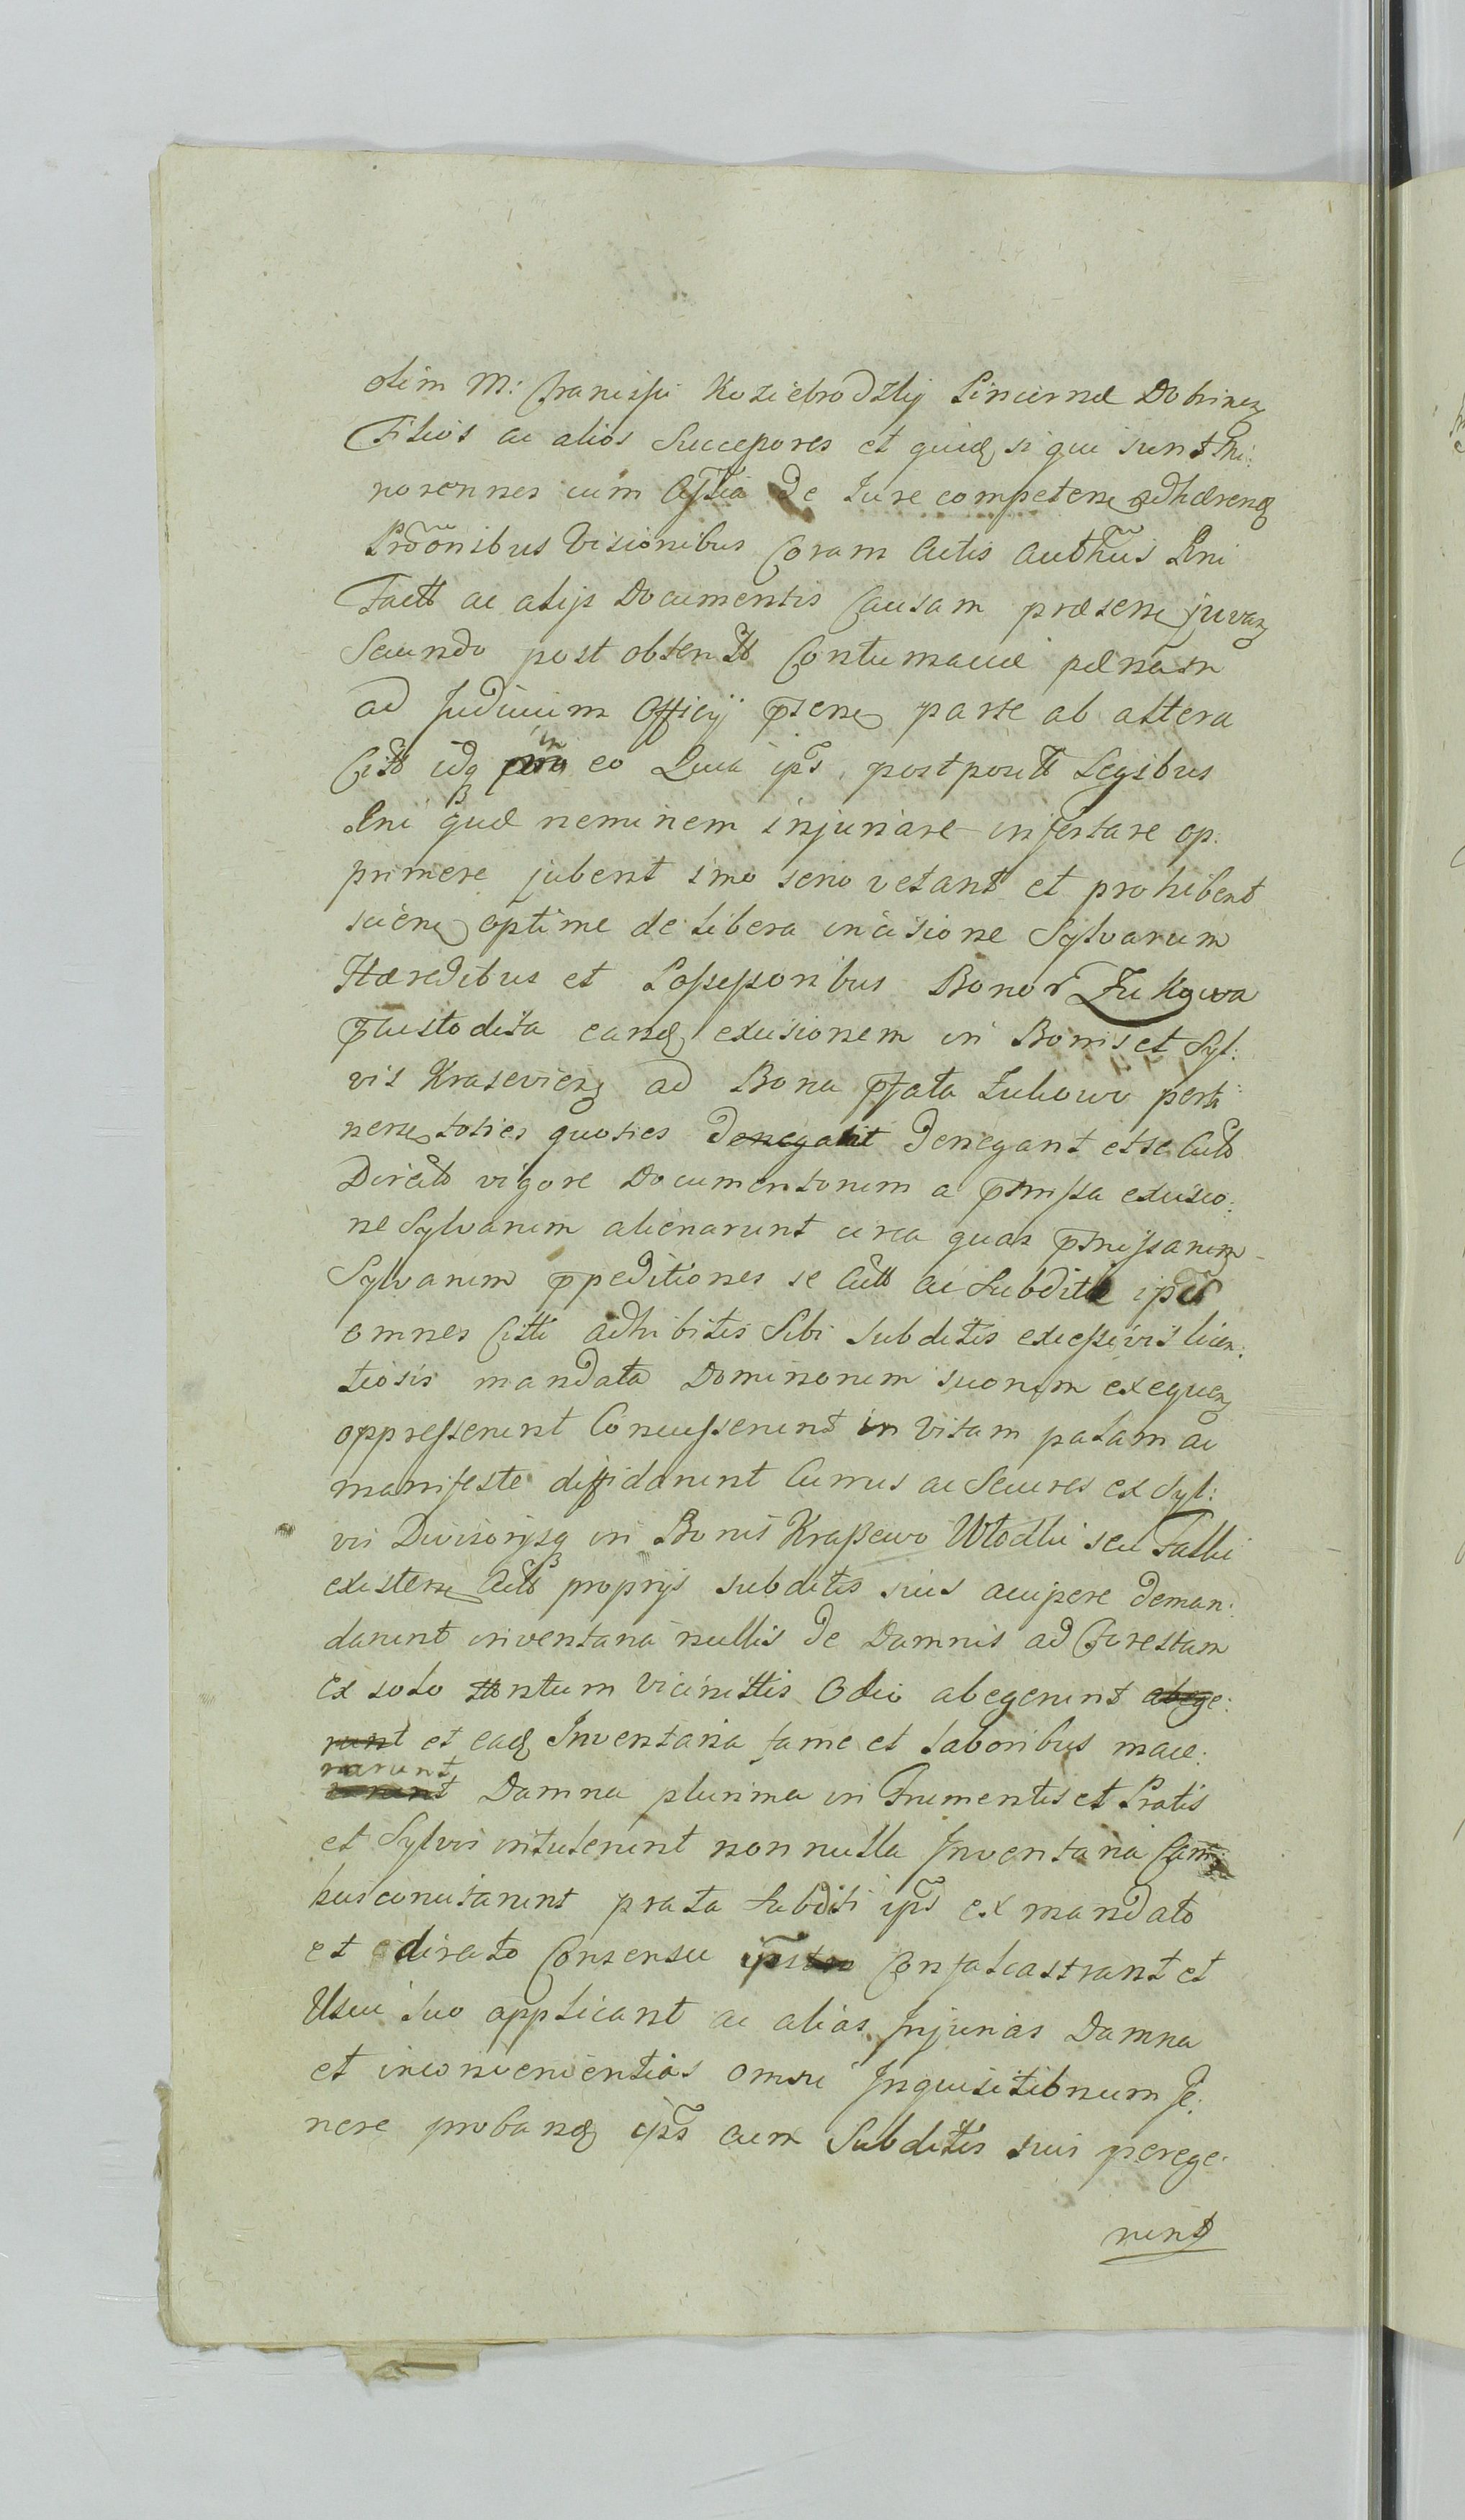 olim M: Francisci Koziebrodzkij Pincernæ Dobrinen
Filios ac alios Successores et quidem si qui sunt Mi:
norennes cum Assîa de Jure competen adhæren
Prôonibus Visionibus Coram Actis Authûs Rni
Factt ac alijs Documentis Causam præsen juvan
Secundo post obtentt Contumaciæ pænam
ad Judicium Officij pñsen parte ab altera
Citt idq in eo Quia ips, postpositt Legibus
Rni quæ neminem injuriare infestare op:
primere jubent imo serio vetant et prohibent
scien optime de libera incisione Sylvarum
Hæredibus et Possessoribus Bonor Zukowa
pcustodita eand excisionem in Bonis et Syl:
vis Krasevien ad Bona pfata Zukowo perti:
nen toties quoties denegant etse Actt
Directt vigore Documentorum a pmissa excisio:
ne Sylvarum alienarunt circa quas pmissarum
Sylvarum ppeditiones se Actt ac Subditæ ips
omnes Citti adhibitis Sibi subditis excessivis licen:
tiosis mandata Dominorum suorum exequen
oppresserunt Concusserunt in Vitam palam ac
manifeste diffidarunt Currus ac Secures ex Syl:
vis Divisorijsq in Bonis Kraszewo Wlodki seu Falki
existen Actt proprijs subditis suis accipere deman:
darunt inventaria nullis de Damnis ad Forestam
ex solo ttantum Vicinittis Odio abegerunt abege:
runt et ead Inventaria fame et laboribus mace:
rarunt Damna plurima in Frumentis et Pratis
et Sylvis intulerunt non nulla Inventaria Cani
bus concitarunt prata Subditi ips ex mandato
et directo Consensu ips Confalcastrant et
Usui suo applicant ac alias Injurias Damna
et inconvenientias omni Inquisitionum Ge:
nere proband ips cum Subditis suis perege:
runt